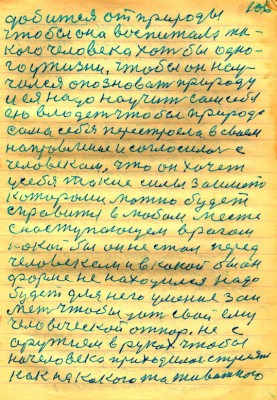 106
добится от природы
чтобы она воспитала та-
кого человека хотбы одно-
го у жизни, чтобы он нау-
чился опозновать природу
и ея надо научит самсебы
ею владет чтобы природа
сама себя перестроела в своем
направлении и согласилас с
человеком, что он хочет
у себя такие силы заимет
которыми можно будет
справитя в любом месте
с наступающем врагом
какой бы он не стал перед
человеком и в какой бы он
форме не находился надо
будет для него умение заи
мет чтобы дать свой ему
человеческой отпор. не с
оружием в руках чтобы
на человека приходилос стрелят
как на какого та животного